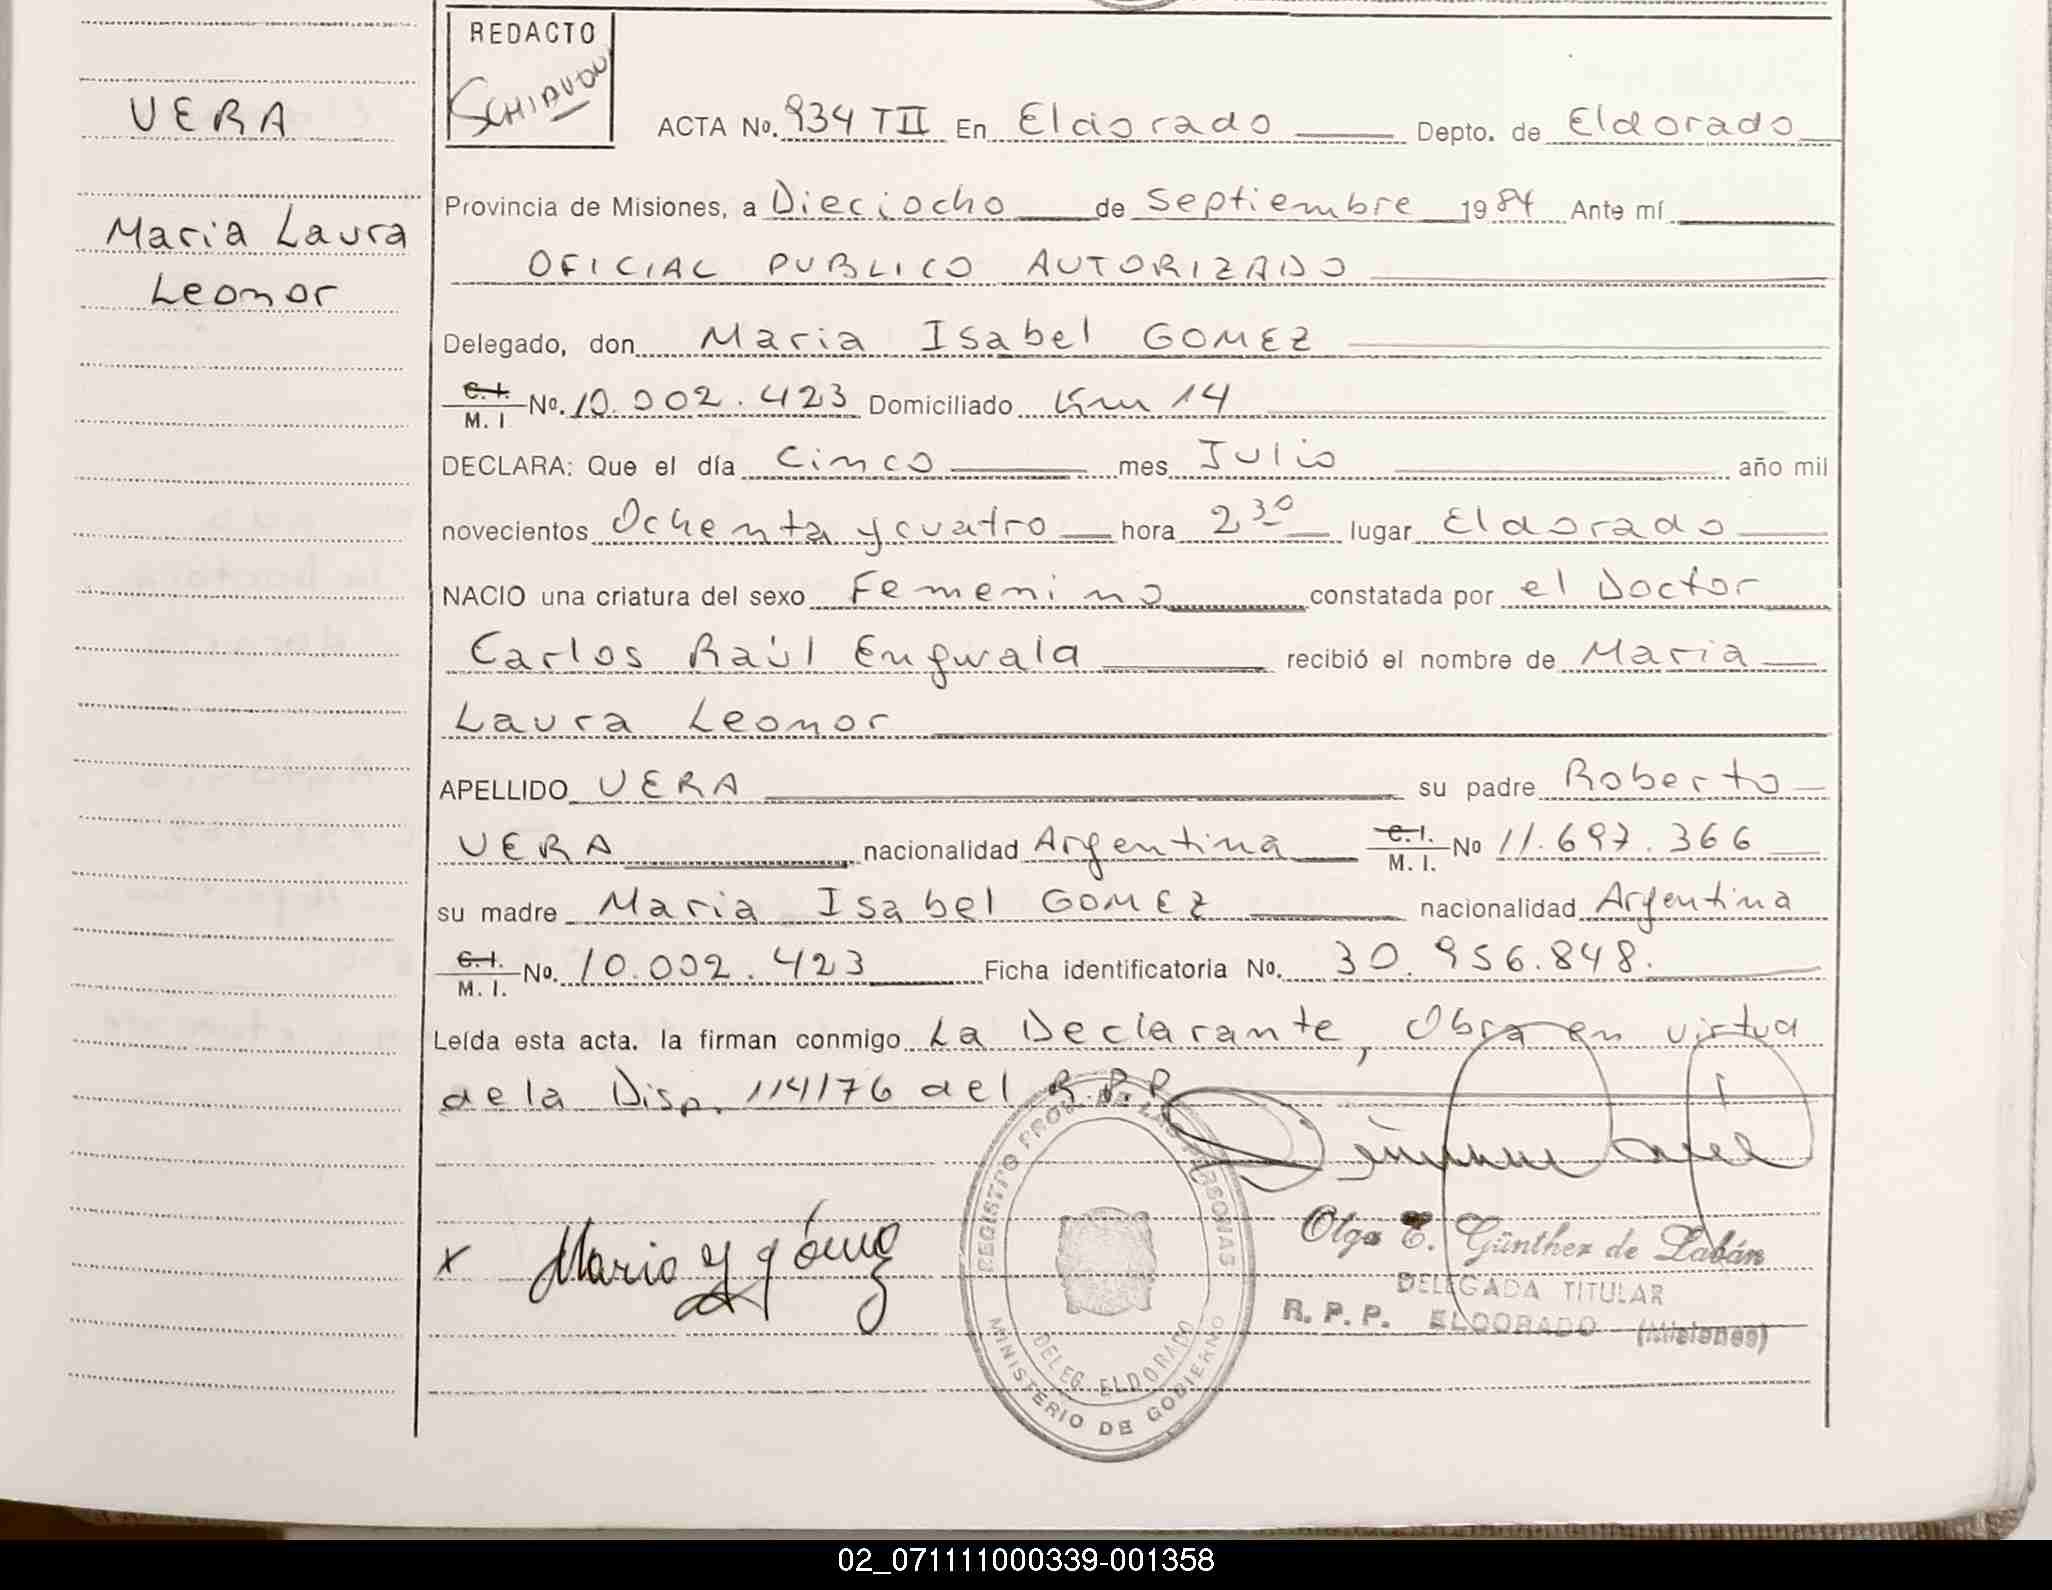 REDACTO
SCHIAVONI
VERA
Maria Laura
Leonor
ACTA No. 934 TII En Eldorado Depto. de Eldorado
Provincia de Misiones, a Dieciocho de Septiembre 1984 Ante mí
OFICIAL PUBLICO AUTORIZADO
Delegado, don Maria Isabel GOMEZ
C. I.
M. I No. 10.002.423 Domiciliado Km 14
DECLARA: Que el día Cinco mes Julio año mil
novecientos Ochenta y cuatro hora 2 30 lugar Eldorado
NACIO una criatura del sexo Femenino constatada por el Doctor
Carlos Raúl Engwala recibió el nombre de Maria
Laura Leonor
APELLIDO VERA su padre Roberto
VERA nacionalidad Argentina C. I.
M. I. No 11.697.366
su madre Maria Isabel GOMEZ nacionalidad Argentina
C. I.
M. I. No. 10.002.423 Ficha identificatoria No. 30.956.848.
Leída esta acta. la firman conmigo La Declarante, Obra en virtud
de la Disp. 114/76 del R.P.P
REGISTRO PROV. DE LAS PERSONAS
MINISTERIO DE GOBIERNO
DELEG. ELDORADO
x Maria Y gómez
Olga E. Günther de Labán
DELEGADA TITULAR
R. P. P. ELDORADO (Misiones)
02_071111000339-001358